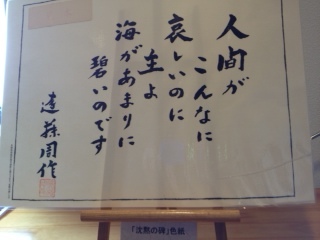 人間が
こんなに
哀しいのに
主よ
海があまりに
碧いのです
遠藤周作
「沈黙の碑」色紙